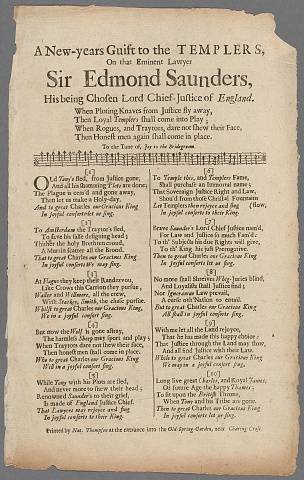 A New-years Guift to the TEMPLERS,
On that Eminent Lawyer
Sir Edmond Saunders,
His being Chosen Lord Chief-Justice of England.
When Ploting Knaves from Justice fly away,
Then Loyal Templers shall come into Play;
When Rogues, and Traytors, dare not shew their Face,
Then Honest men again shall come in place.
To the Tune of, Joy to the Bridegroom.
[1]
OLd Tony's fled, from Justice gone,
And all his shamming Plots are done;
The Plague is ceas'd and gone away,
Then let us make a Holy-day.
And to great Charles our Gracious King
In Joyful consorts let us sing.
[2]
To Amsterdam the Traytor's fled,
To save his false designing head;
Thither the holy Brethren crowd,
A Murrin seize all the Brood.
That to great Charles our Gracious King
In Joyful consorts We may sing.
[3]
At Hague they keep their Randezvouz,
Like Crows the Carrion they pursue,
Waller and Willmore, all the crew,
With Starkey, Smith, the chase pursue.
Whilst to great Charles our Gracious King
We in a joyful consort sing.
[4]
But now the Wolf is gone astray,
The harmless Sheep may sport and play;
When Traytors dare not shew their face,
Then honest men shall come in place.
Who to great Charles our Gracious King
Will in a joyful consort sing.
[5]
While Tony with his Plots are fled,
And never more to shew their head;
Renowned Saunders to their grief,
Is made of England Justice Chief.
That Lawyers may rejoyce and sing
In Joyful consorts to their King.
[6]
To Temple this, and Templers Fame,
Shall purchase an Immortal name;
That Sovereign Justice Right and Law,
Shou'd from those Christal Fountains
Let Templers then rejoyce and sing (flow,
In joyful consorts to their King.
[7]
Brave Saunder's Lord Chief Justice nam'd,
For Law and Justice so much Fam'd;
To th' Subjects his due Rights will give,
To th' King his just Prerogative.
Then to great Charles our Gracious King
In Joyful consorts let us sing.
[8]
No more shall Shrieves Whig-Juries blind,
And Loyalists shall Justice find;
Nor Ignoramus Law prevail,
But to great Charles our Gracious King
All shall in joyful consorts sing.
[9]
With me let all the Land rejoyce,
That he has made this happy choice;
That Justice through the Land may flow,
And all find Justice with their Law.
Whilst to great Charles our Gracious King
We in joyful consorts sing.
[10]
Long live great Charles, and Royal James,
Of future Age the happy Thames;
To sit upon the British Throne,
When Tony and his Tribe are gone.
Then to great Charles our Gracious King
In joyful consorts let us sing.
Printed by Nat. Thompson at the entrance into the Old-Spring-Garden, near Charing Cross.